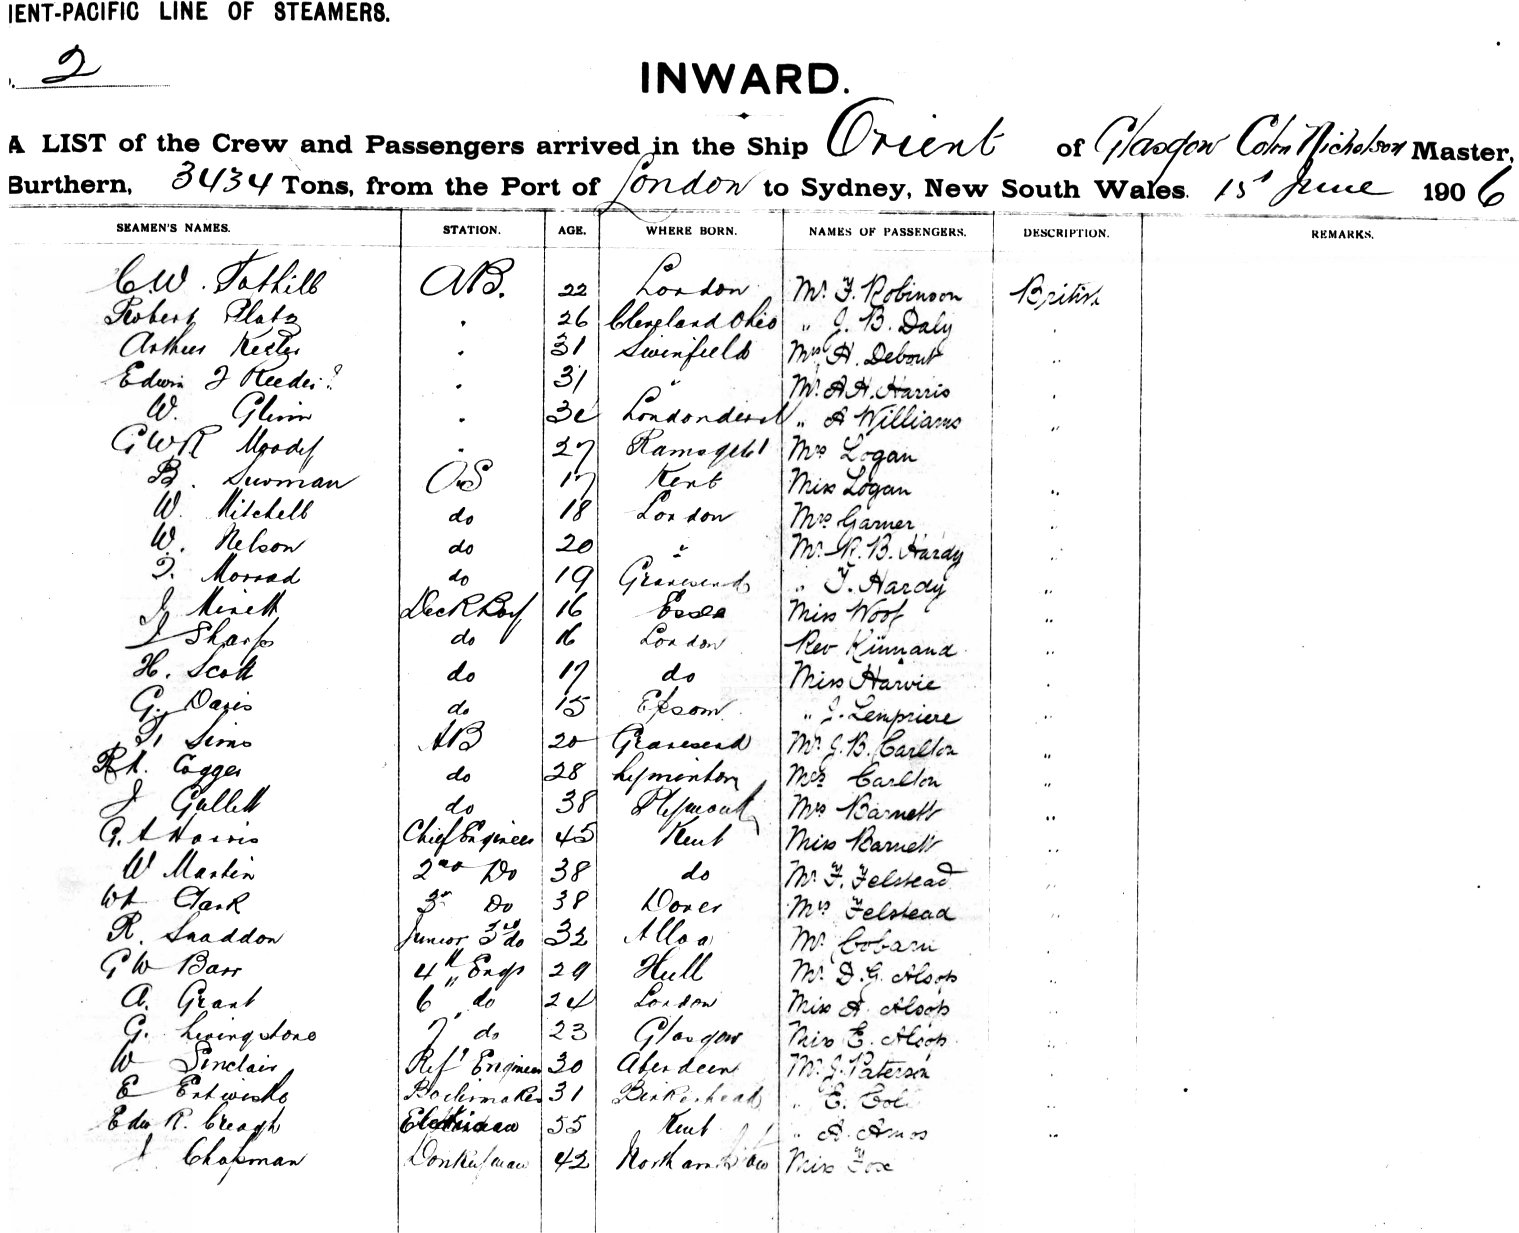 IENT-PACIFIC LINE OF STEAMERS.
. 2
INWARD.
A LIST of the Crew and Passengers arrived in the Ship Orient of Glasgow Colin Nicholson Master,
Burthern, 3434 Tons, from the Port of London to Sydney, New South Wales. 1st June 1906
SEAMEN'S NAMES. STATION. AGE. WHERE BORN. NAMES OF PASSENGERS. DESCRIPTION. REMARKS.
C W. Tothill AB. 22 London Mr. F. Robinson British
Robert Platz . 26 Cleveland Ohio " J. B. Daly
Arthur Kester . 31 Swinfield Mrs H. Debout "
Edwin J Reeder? . 31 " Mr. A. H. Harris
W. Glinn . Londonderry " A Williams "
G W R Moody . 27 Ramsgate Mrs Logan
B. Suoman OS 17 Kent Miss Logan "
W. Mitchell do 18 London Mrs Garner "
W. Nelson do 20 " Mr. R. B. Hardy "
Morrad do 19 Gravesend " T. Hardy "
J Minett Deck Boy 16 Essex Miss Woof "
J Sharp do 16 London Rev Kinnand "
H. Scott do 17 do Miss Harvie
G. Davis do 15 Epsom " J. Lempriere "
Sims AB 20 Gravesend Mr. J. B. Carlton "
Cogger do 28 Lymington Mrs Carlton "
J Gullett do 38 Plymouth Mrs Barnett "
G. A Harris Chief Engineer 45 Kent Miss Barnett "
W Martin 2nd Do 38 do Mr F. Felstead "
Wm Clark 3rd Do 38 Dover Mrs Felstead "
R. Snaddon Junior 3rd do 32 Alloa Mr Cobain "
G W Barr 4th Engr 29 Hull Mr. D. G. Alsop "
A. Grant 6 " do 24 London Miss A. Alsop "
G. Livingstone 7 " do 23 Glasgow Miss E. Alsop "
W Sinclair Ref' Engineer 30 Aberdeen Mr. J. Paterson
E Entwistle Boilermaker 31 Birkenhead " E. "
Edw R. Creagh Electrician 55 Kent " A. Amos "
J Chapman Donkeyman 42 Miss Fox